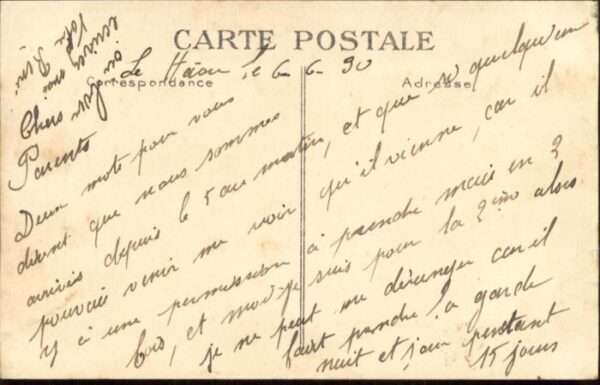 CARTE POSTALE
Correspondance
Adresse
Le 6-6-30
Chers
Parents
Deux mots pour vous
dirent que nous sommes
arrivés depuis le 5 au matin, et que si quelqu'un
pouvait venir me voir qu'il vienne, car il
y à une permission à prendre mais en 3
fois, et moi je suis pour la 3ème alors
je ne peut me déranger car il
faut prendre la garde
nuit et jour pendant
15 jours